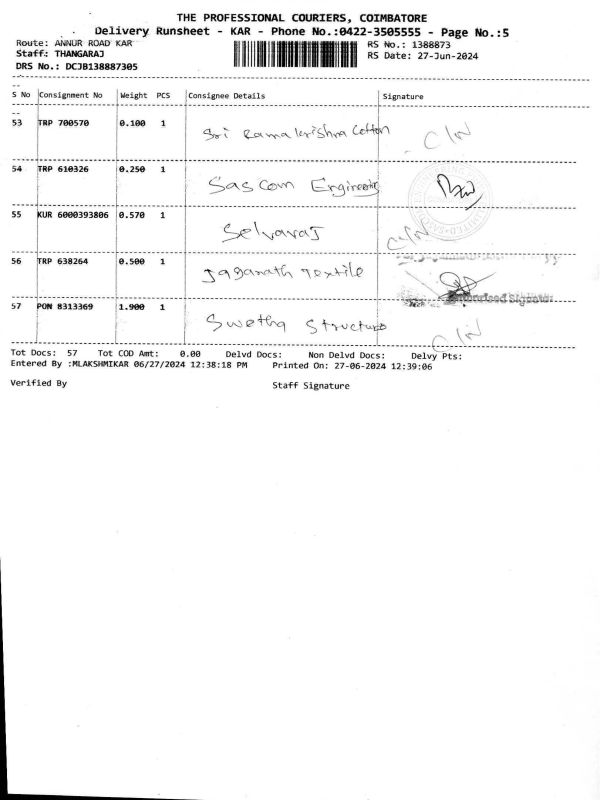 THE PROFESSIONAL COURIERS, COIMBATORE
Delivery Runsheet - KAR - Phone No.:0422-3505555 - Page No.:5
Route: ANNUR ROAD KAR RS No.: 1388873
Staff: THANGARAJ RS Date: 27-Jun-2024
DRS No.: DCJB138887305
S No Consignment No Weight PCS Consignee Details Signature
53 TRP 700570 0.100 1 Sri Ramakrishna Cotton C/N
54 TRP 610326 0.250 1 Sascom Engineering
55 KUR 6000393806 0.570 1 Selvaraj C/N
56 TRP 638264 0.500 1 Jaganath Textile
Authorised Signator
57 PON 8313369 1.900 1 Swetha Structure C/N
Tot Docs: 57 Tot COD Amt: 0.00 Delvd Docs: Non Delvd Docs: Delvy Pts:
Entered By :MLAKSHMIKAR 06/27/2024 12:38:18 PM Printed On: 27-06-2024 12:39:06
Verified By Staff Signature